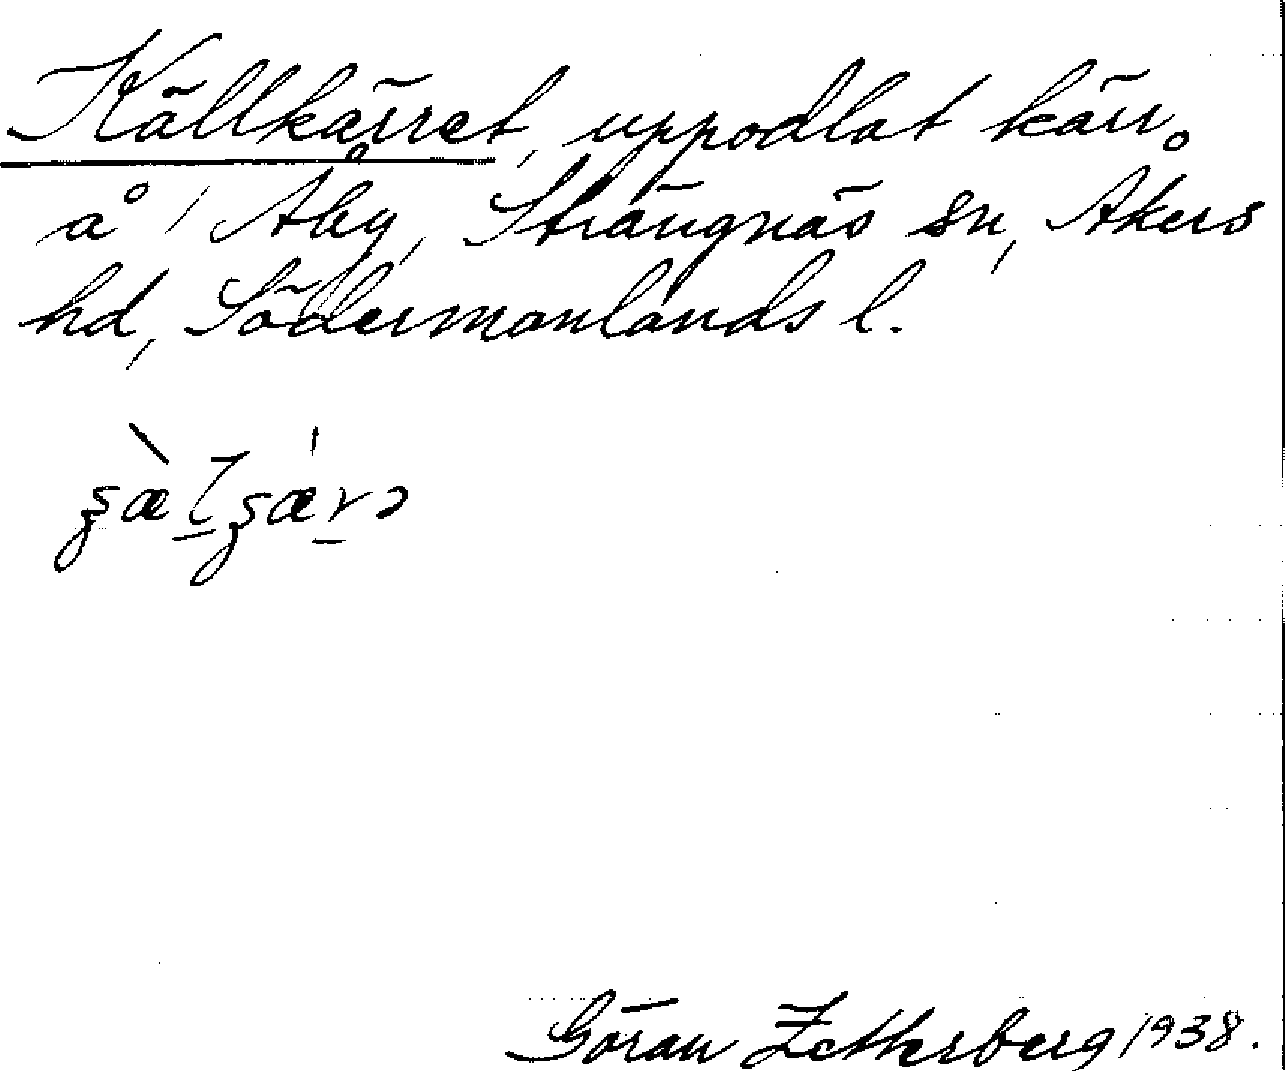 Källkärret, uppodlat kärr
å Åby, Strängnäs sn, Åkers
hd, Södermanlands l.
Göran Zetterberg 1938.